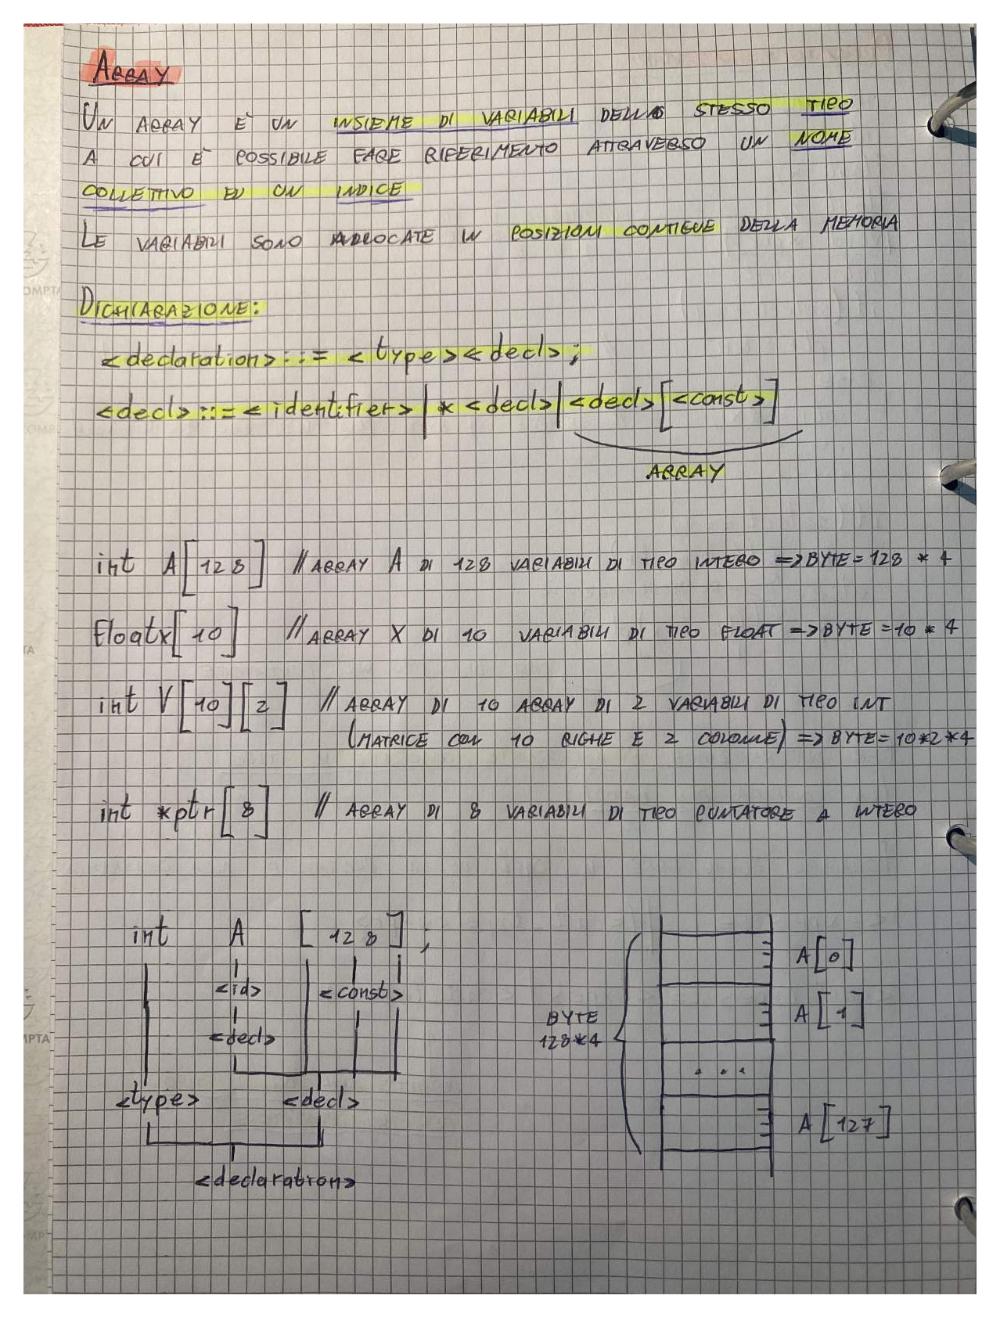 ARRAY
UN ARRAY E' UN INSIEME DI VARIABILI DELLO STESSO TIPO
A CUI E' POSSIBILE FARE RIFERIMENTO ATTRAVERSO UN NOME
COLLETTIVO ED UN INDICE
LE VARIABILI SONO ALLOCATE IN POSIZIONI CONTIGUE DELLA MEMORIA
DICHIARAZIONE:
<declaration>::= <type><decl>;
<decl>::=<identifier>|*<decl>|<decl>[<const>]
ARRAY
int A[128] // ARRAY A DI 128 VARIABILI DI TIPO INTERO => BYTE = 128 * 4
Float x[10] // ARRAY X DI 10 VARIABILI DI TIPO FLOAT => BYTE = 10 * 4
int V[10][2] // ARRAY DI 10 ARRAY DI 2 VARIABILI DI TIPO INT
(MATRICE CON 10 RIGHE E 2 COLONNE) => BYTE = 10*2*4
int *ptr[8] // ARRAY DI 8 VARIABILI DI TIPO PUNTATORE A INTERO
int A [128];
<id> <const>
<decl>
<type> <decl>
<declaration>
BYTE
128*4
A[0]
A[1]
...
A[127]